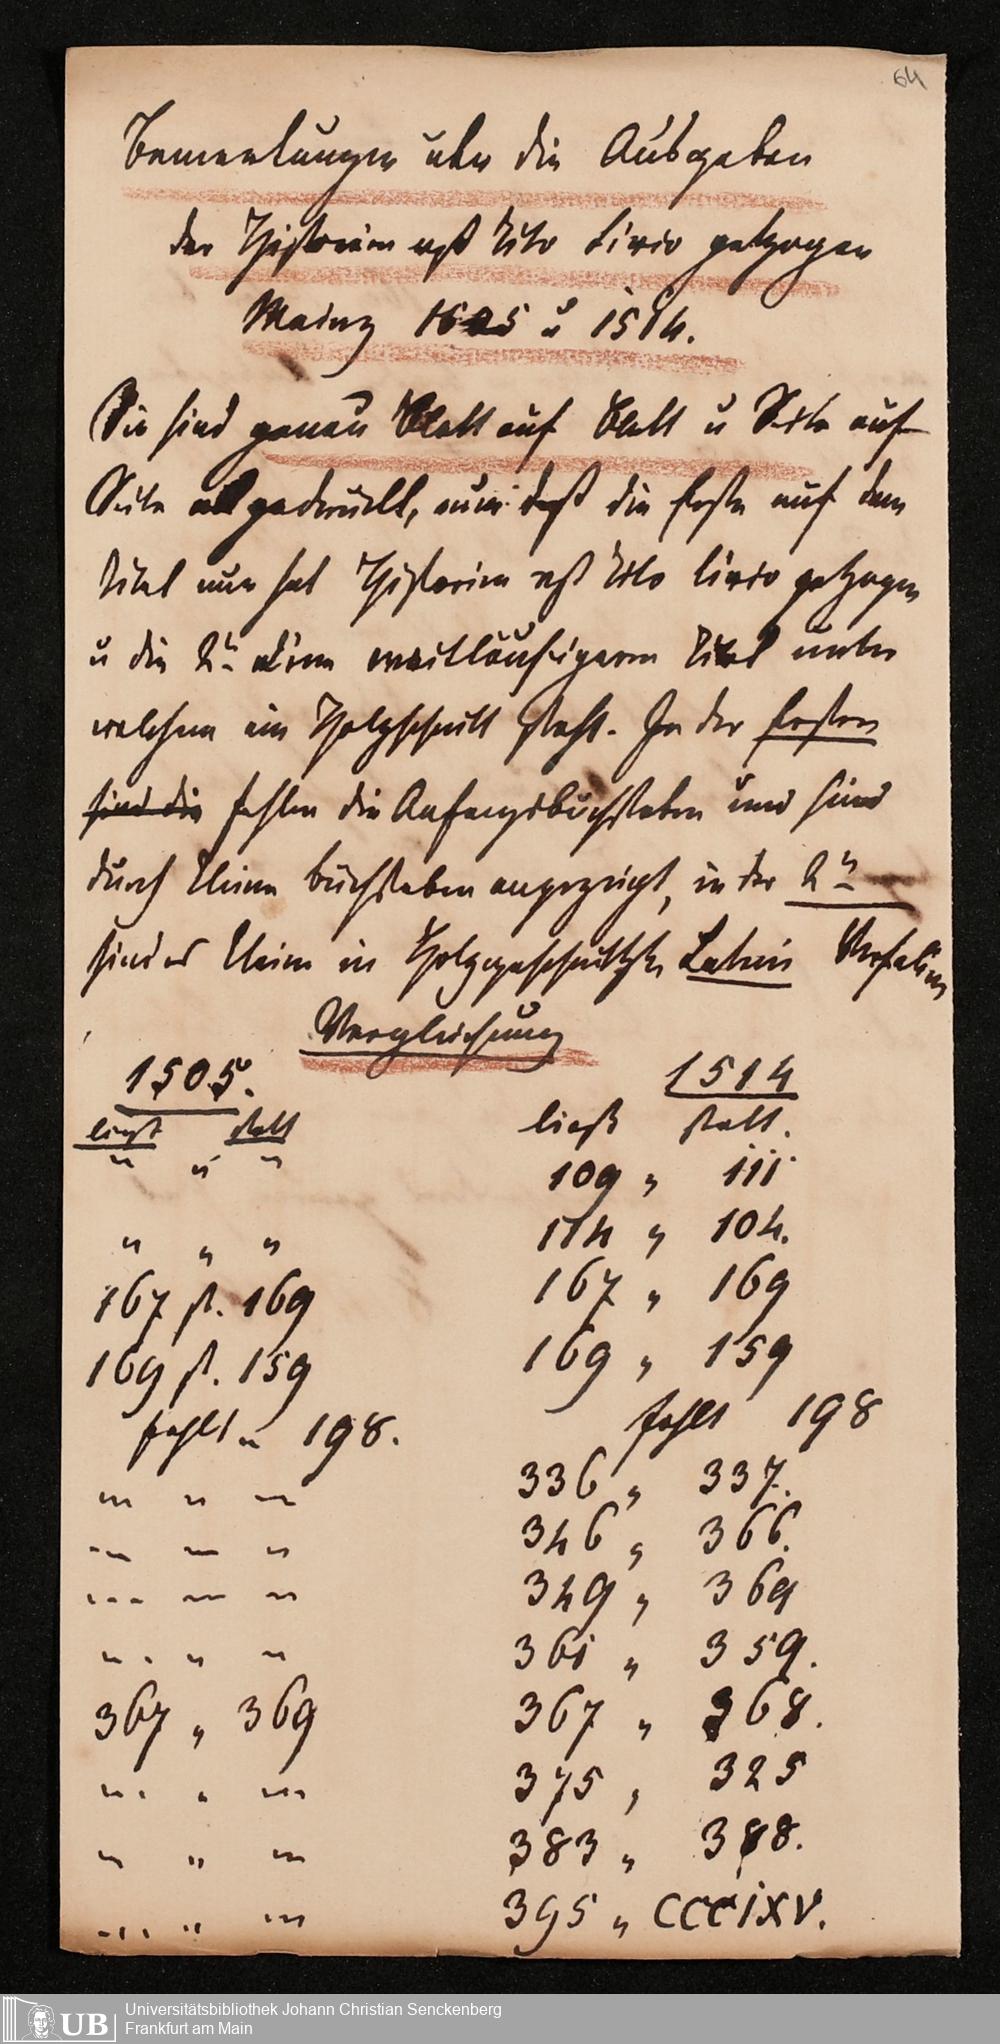 64
Bemerkungen über die Ausgaben
der Historien auß Tito Livio gezogen
Mainz 1505 u 1514.
Sie sind genau Blatt auf Blatt u Seite auf
Seite abgedruckt, nur daß die Erste auf dem
Titel nur hat Historien auß Tito Livio gezogen
u die 2te einen weitläufigeren Titel unter
welchem ein Holzschnitt steht. In der Ersten
sind die fehlen die Anfangsbuchstaben und sind
durch kleine Buchstaben angezeigt, in der 2tn
sind es kleine in Holz geschnittene Latein Versalien
Vergleichung
1505. 1514
liest statt ließt statt.
" " " 109 " 111
" " " 114 " 104.
167 st. 169 167 " 169
169 st. 159 169 " 159
fehlt " 198. fehlt 198
" " " 336 " 337.
" " " 346 " 366.
" " " 349 " 369
" " " 361 " 359.
367 " 369 367 " 368.
" " " 375 " 325
" " " 383 " 388.
" " " 395 " CCCIXV.
UB Universitätsbibliothek Johann Christian Senckenberg
Frankfurt am Main